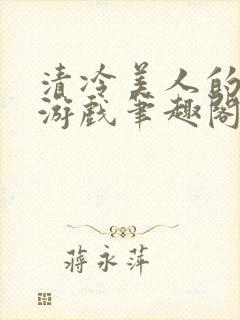 清冷美人的
游戏笔趣阁
蒋永萍